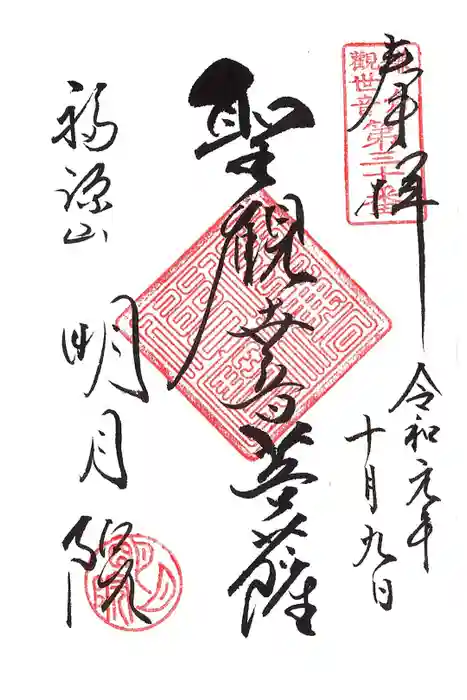 奉拝
觀世音第三十番
令和元年
十月九日
聖観世音菩薩
福源山
明月院